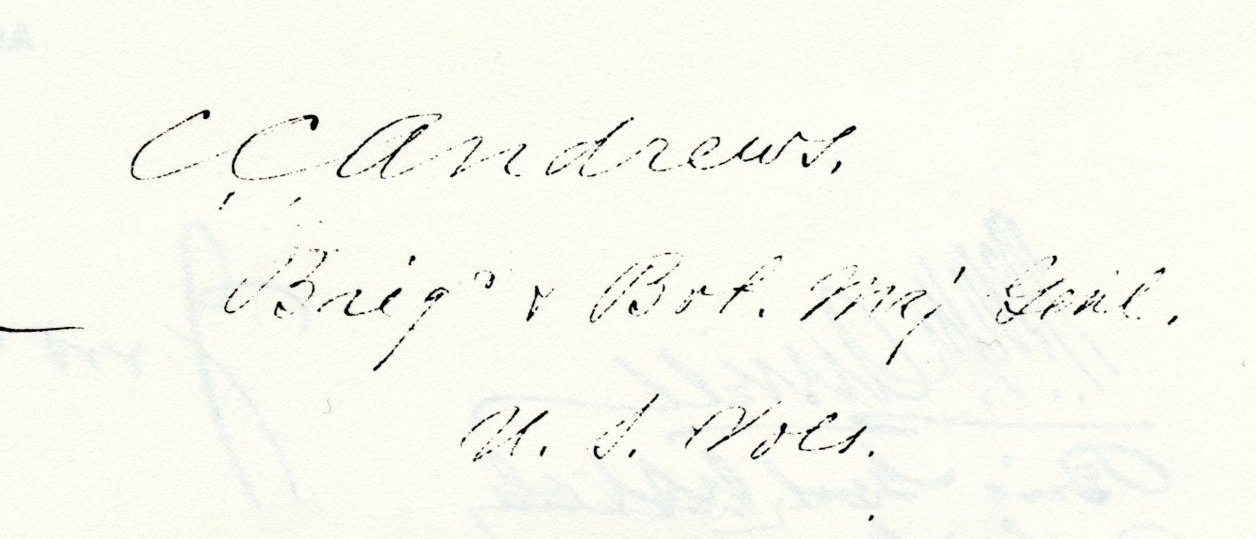 C. C. Andrews.
Brigr & Bvt. Maj Genl.
U. S. Vols.